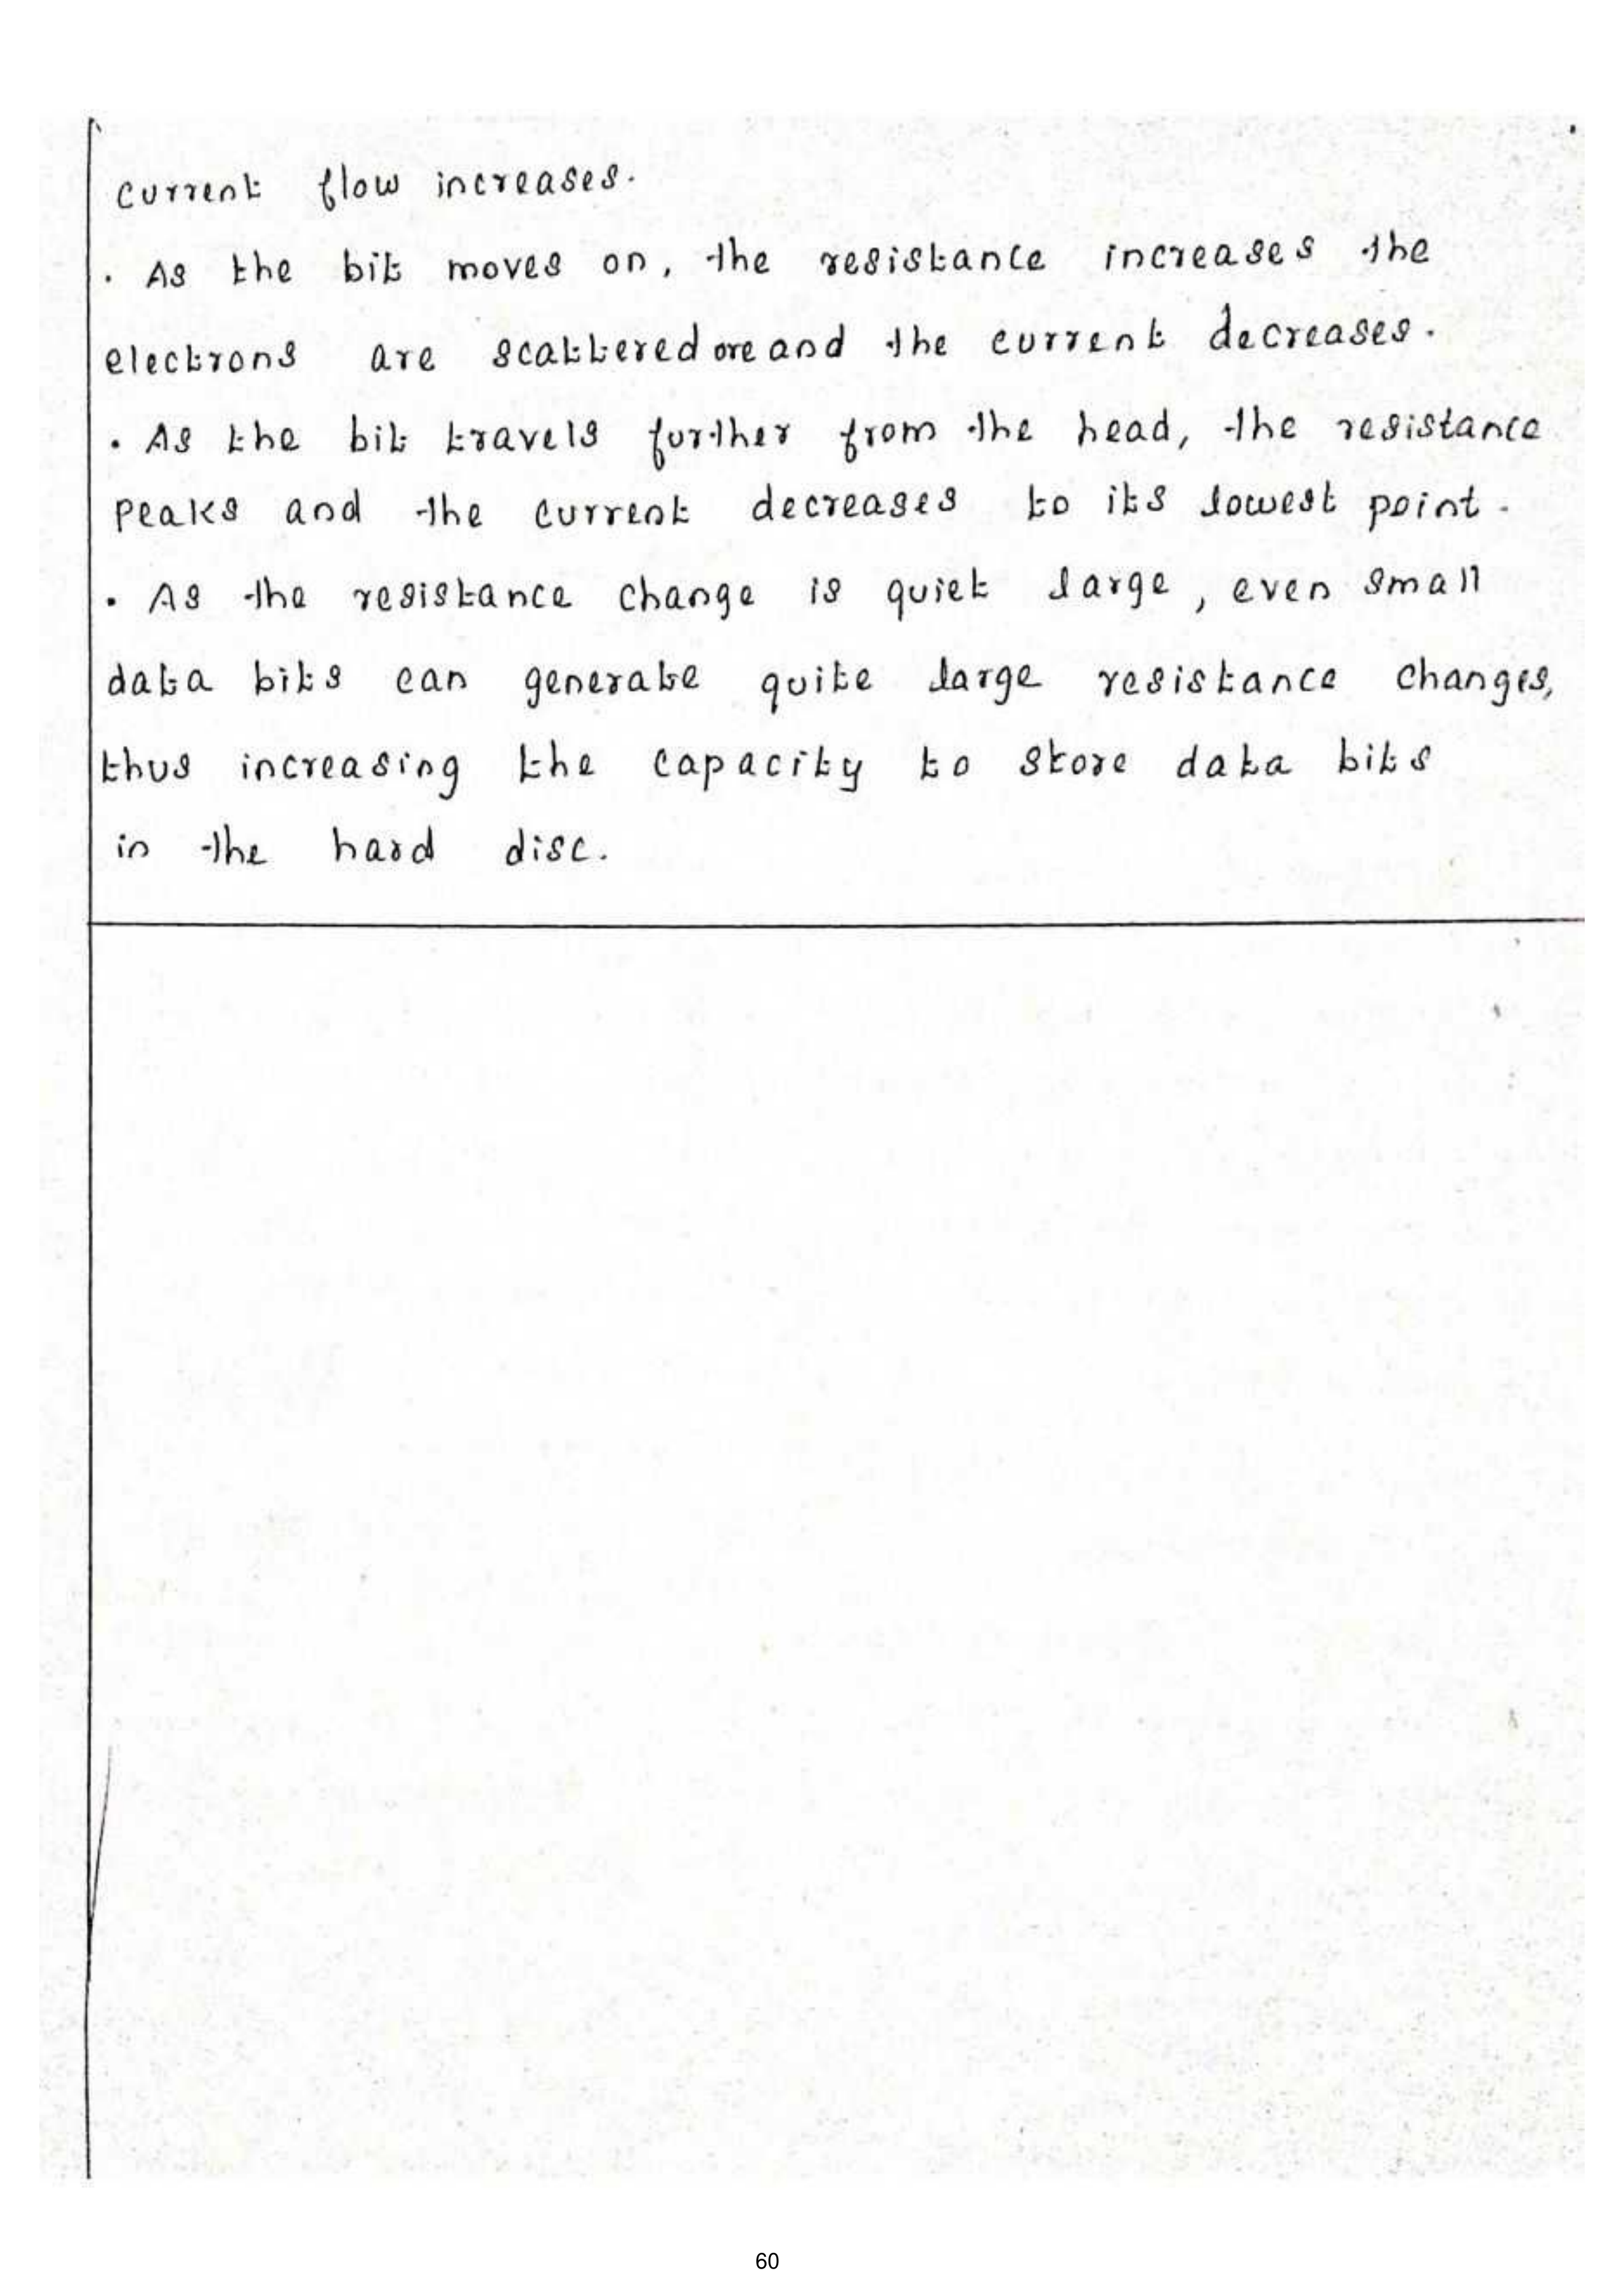 current flow increases.
. As the bit moves on, the resistance increases the
electrons are scattered ore and the current decreases.
. As the bit travels further from the head, the resistance
peaks and the current decreases to its lowest point.
. As the resistance change is quiet large, even small
data bits can generate quite large resistance changes,
thus increasing the capacity to store data bits
in the hard disc.
60